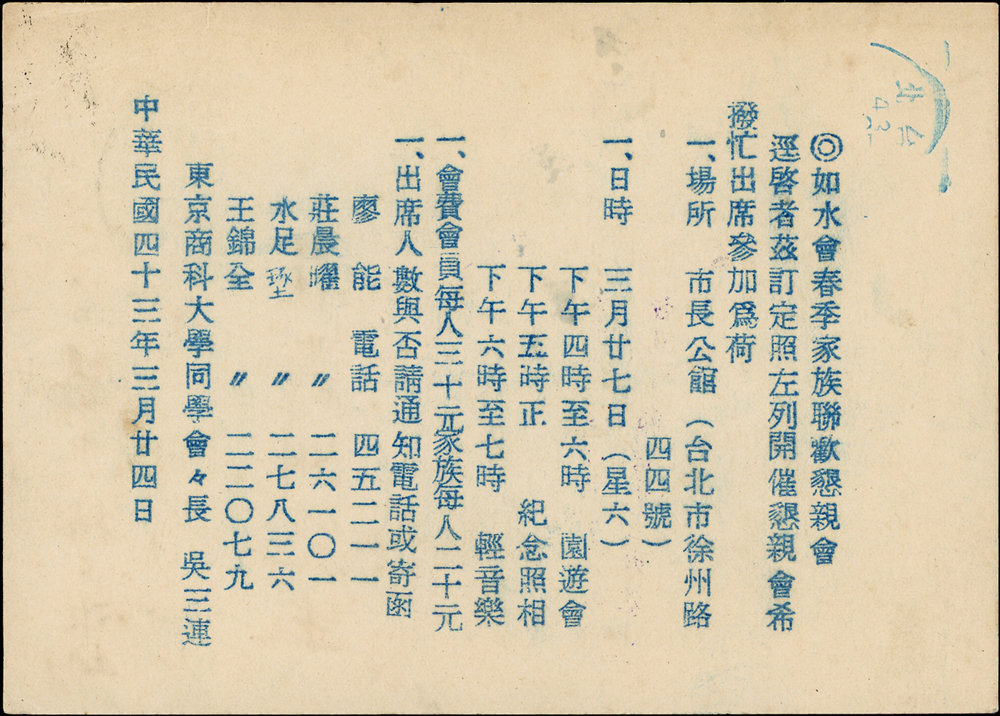 ◎如水會春季家族聯歡懇親會
逕啓者茲訂定照左列開催懇親會希
撥忙出席參加爲荷
一、場所　市長公館（台北市徐州路
四四號）
一、日時　三月廿七日（星六）
下午四時至六時　園遊會
下午五時正　紀念照相
下午六時至七時　輕音樂
一、會費會員每人三十元家族每人二十元
一、出席人數與否請通知電話或寄函
廖　能　電話　四五二一一
莊晨曜　〃　二六一〇一
水足　〃　二七八三六
王錦全　〃　二二〇七九
東京商科大學同學會々長　吳三連
中華民國四十三年三月廿四日